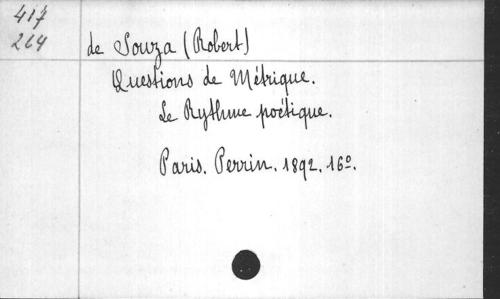 417
264
de Souza (Robert)
Questions de Métrique.
Le Rythme poétique.
Paris. Perrin. 1892. 16º.